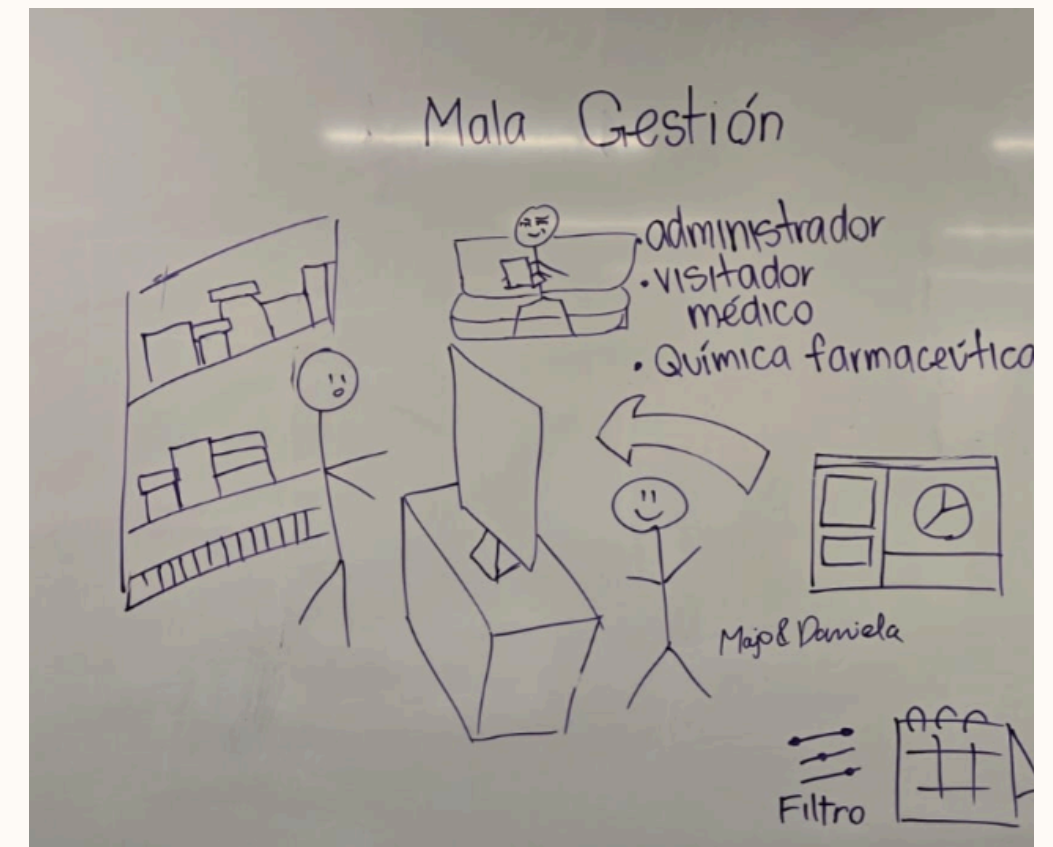 Mala Gestión
• administrador
• visitador
médico
• Química farmaceútica
Majo & Daniela
Filtro